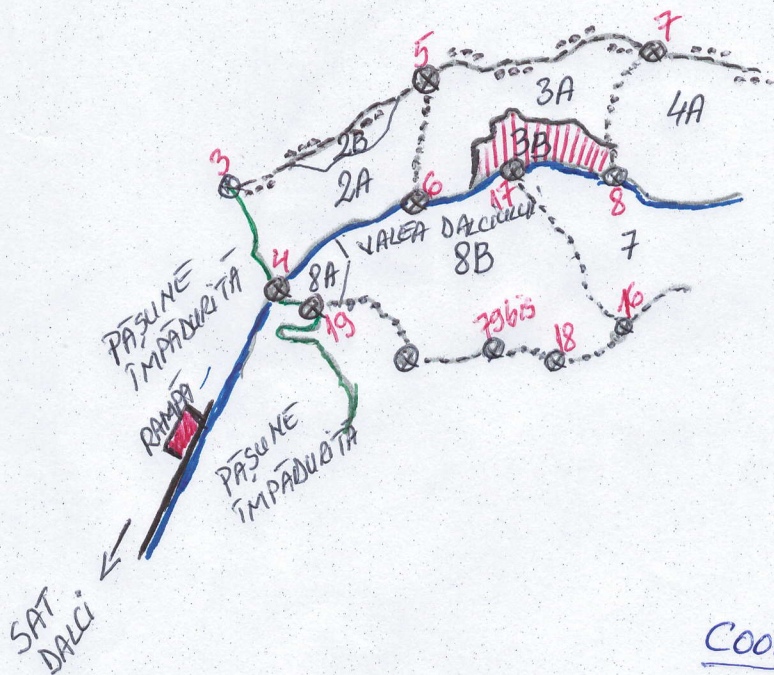 7
5
3A
4A
2B
3B
3
2A
6
17
8
VALEA DALCIULUI
4
8A
8B
7
19
79bis
18
16
PĂȘUNE
ÎMPĂDURITĂ
RAMPĂ
PĂȘUNE
ÎMPĂDURITĂ
SAT
DALCI